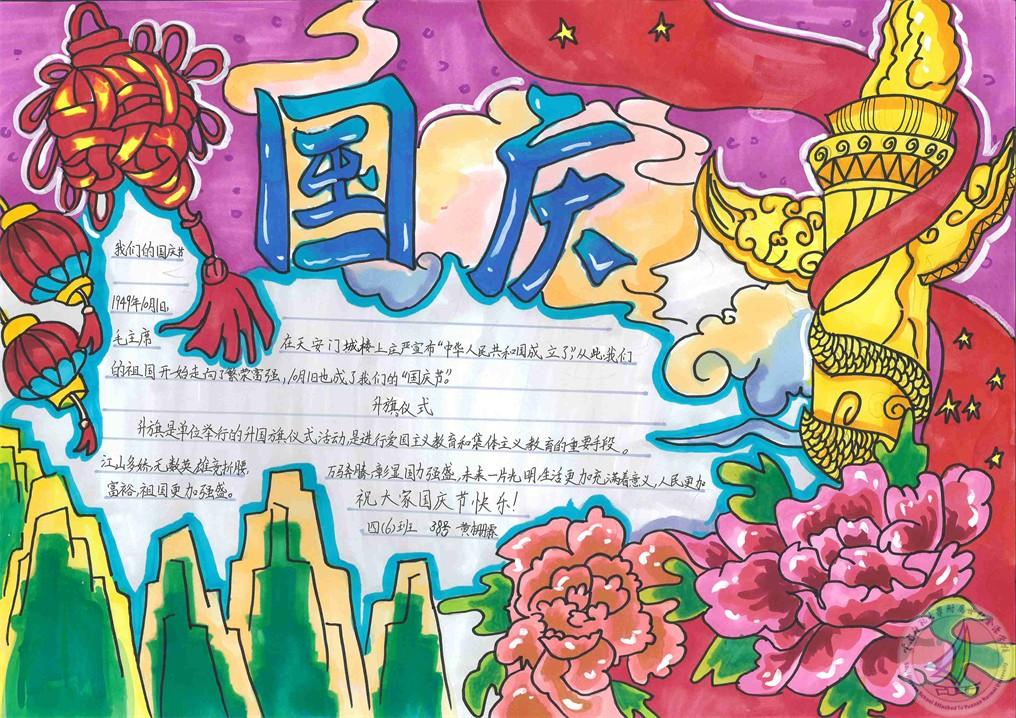 国庆
我们的国庆节
1949年10月1日,
毛主席
在天安门城楼上庄严宣布“中华人民共和国成立了”,从此,我们
的祖国开始走向了繁荣富强,10月1日也成了我们的“国庆节”。
升旗仪式
升旗是单位举行的升国旗仪式活动,是进行爱国主义教育和集体主义教育的重要手段。
江山多娇,无数英雄竞折腰,
万马奔腾,彰显国力强盛,未来一片光明,生活更加充满着意义,人民更加
富裕,祖国更加强盛。
祝大家国庆节快乐!
四(6)班 38号